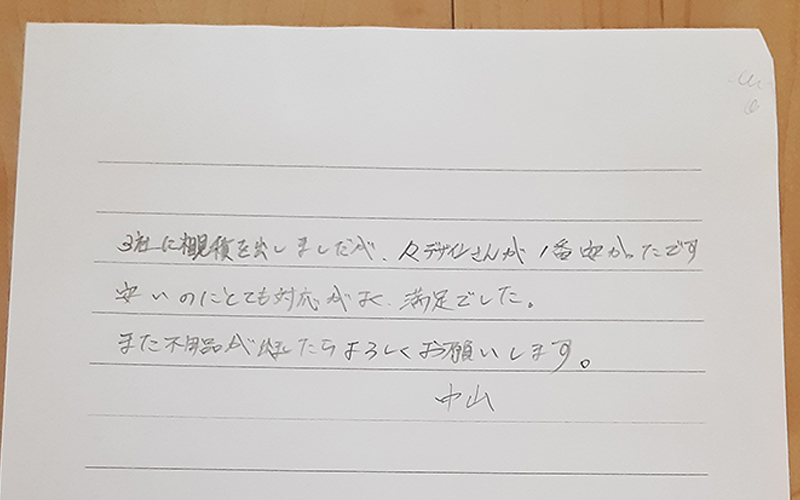 3社に相見積を出しましたが、々デザインさんが1番安かったです
安いのにとても対応がよく、満足でした。
また不用品が出たらよろしくお願いします。
中山